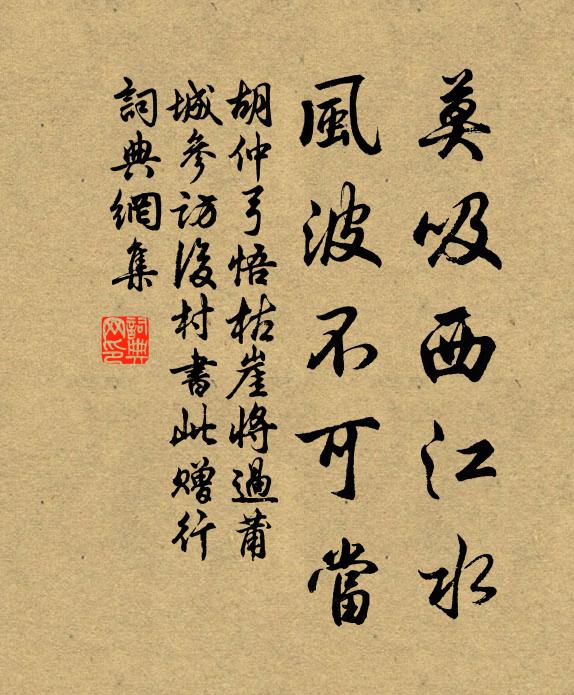 莫吸西江水
風波不可當
胡仲弓悟枯崖將過莆
城參訪後村書此贈行
詞典網集
詞典网印